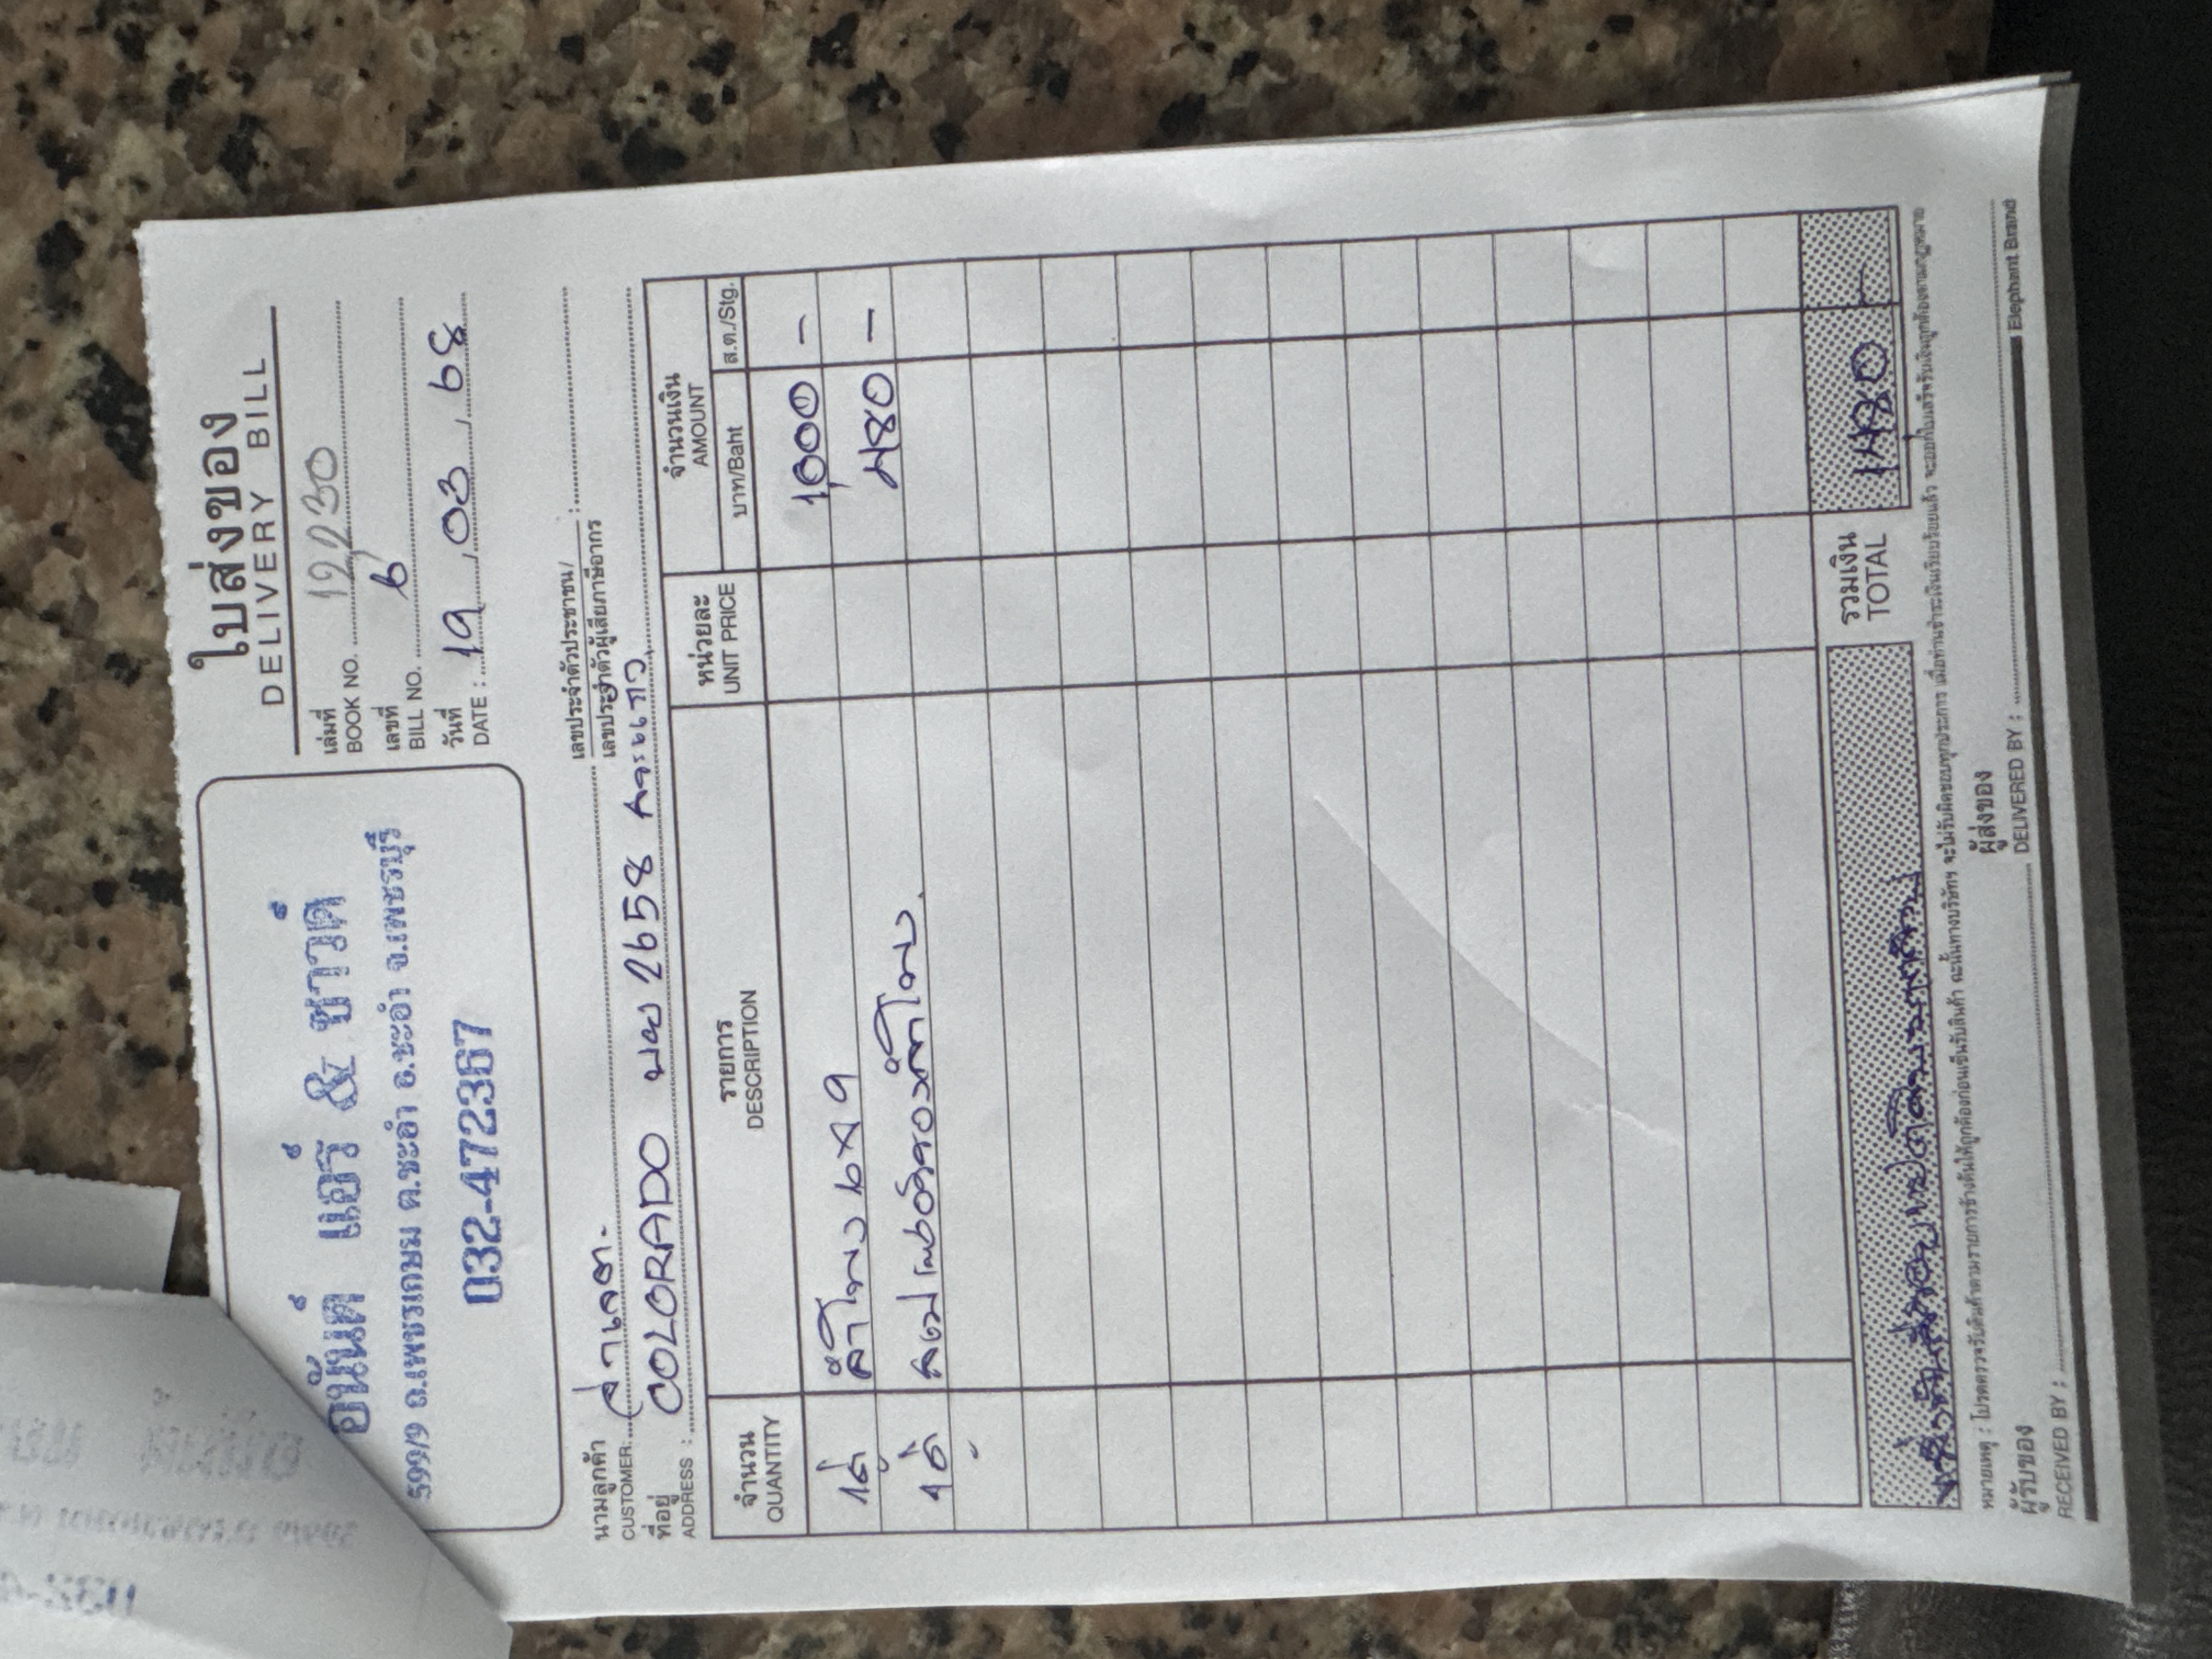 อนันต์ แอร์ & ซาวด์
599/9 ถ.เพชรเกษม ต.ชะอำ อ.ชะอำ จ.เพชรบุรี
032-472367
ใบส่งของ
DELIVERY BILL
เล่มที่
BOOK NO. 12230
เลขที่
BILL NO. 6
วันที่
DATE : 19 / 03 / 68
นามลูกค้า
CUSTOMER:
เลขประจำตัวประชาชน/
เลขประจำตัวผู้เสียภาษีอากร :
ที่อยู่
ADDRESS : COLORADO 2658
จำนวน QUANTITY รายการ DESCRIPTION หน่วยละ UNIT PRICE จำนวนเงิน AMOUNT
บาท/Baht ส.ต./Stg.
ลำโพง 6x9 1,000 -
ลำโพง 480 -
รวมเงิน
TOTAL 1480 -
หมายเหตุ : โปรดตรวจรับสินค้าตามรายการข้างต้นให้ถูกต้องก่อนเซ็นรับสินค้า ฉะนั้นทางบริษัทฯ จะไม่รับผิดชอบทุกประการ เมื่อท่านชำระเงินเรียบร้อยแล้ว จะออกใบเสร็จรับเงินถูกต้องตามกฎหมาย
ผู้รับของ
RECEIVED BY :
ผู้ส่งของ
DELIVERED BY :
Elephant Brand